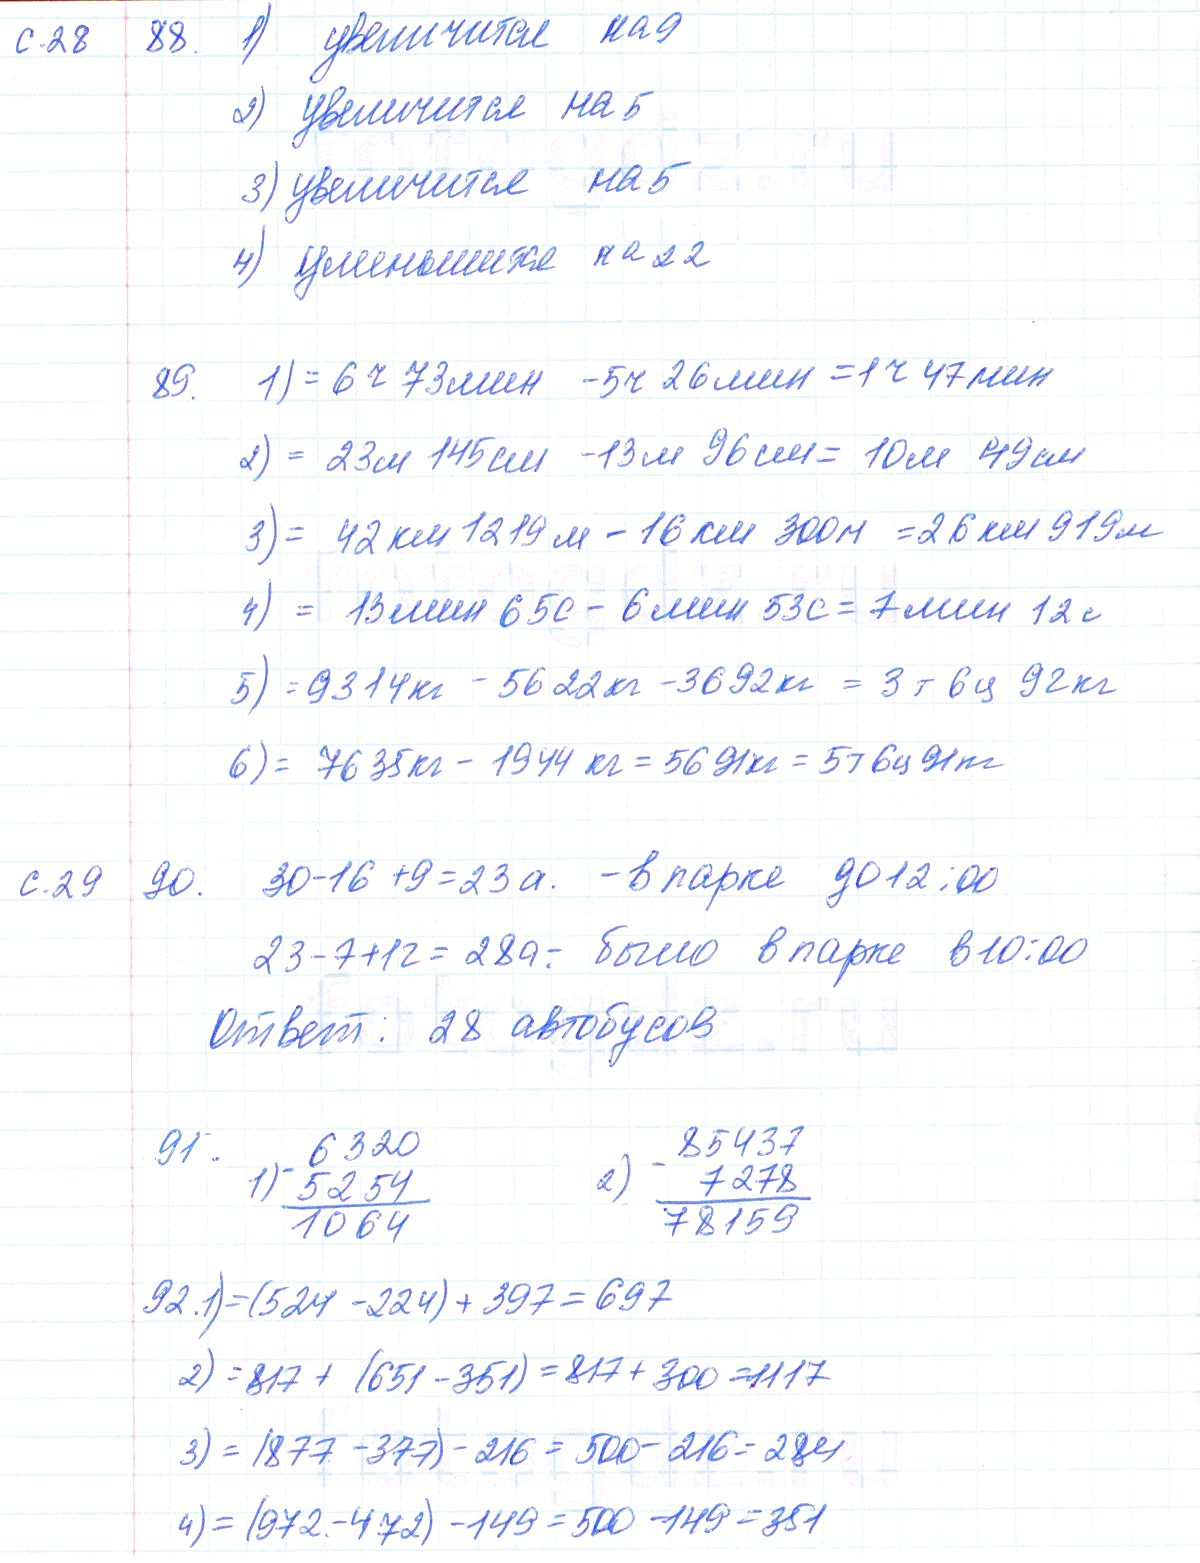 с.28 88. 1) увеличится на 9
2) увеличится на 5
3) увеличится на 5
4) уменьшится на 22
89. 1) = 6ч 73мин - 5ч 26мин = 1ч 47мин
2) = 23м 145см - 13м 96см = 10м 49см
3) = 42км 1219м - 16км 300м = 26км 919м
4) = 13мин 65с - 6мин 53с = 7мин 12с
5) = 9314кг - 5622кг - 3692кг = 3т 6ц 92кг
6) = 7635кг - 1944кг = 5691кг = 5т 6ц 91кг
с.29 90. 30-16+9=23а. - в парке до 12:00
23-7+12=28а - было в парке в 10:00
Ответ: 28 автобусов
91. 1) - 6320 2) - 85437
5254 7278
1064 78159
92. 1) = (524 - 224) + 397 = 697
2) = 817 + (651 - 351) = 817 + 300 = 1117
3) = (877 - 377) - 216 = 500 - 216 = 284
4) = (972 - 472) - 149 = 500 - 149 = 351